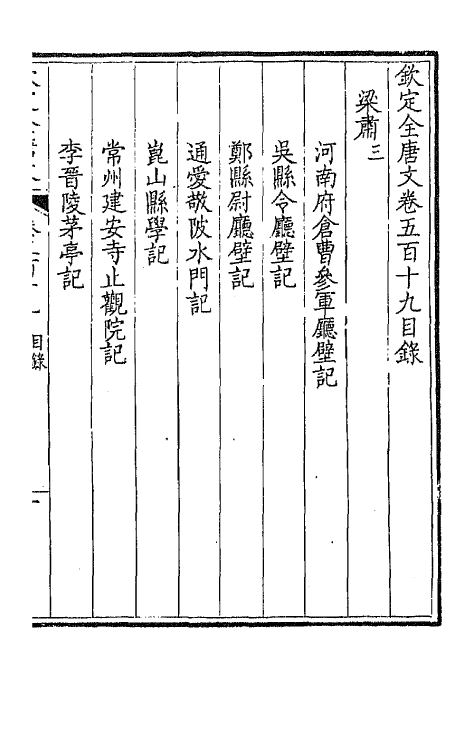 欽定全唐文卷五百十九目錄
梁肅三
河南府倉曹參軍廳壁記
吳縣令廳壁記
鄭縣尉廳壁記
通愛敬陂水門記
崑山縣學記
常州建安寺止觀院記
李晉陵茅亭記
目錄